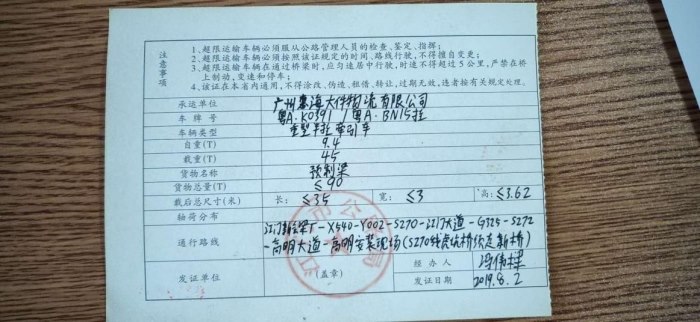 注意事项
1、超限运输车辆必须服从公路管理人员的检查、鉴定、指挥;
2、超限运输车辆必须按照该证规定的时间、路线行驶,不得擅自变更;
3、超限运输车辆在通过桥梁时,应匀速居中行驶,时速不得超过5公里,严禁在桥
上制动、变速和停车;
4、该证在本省内通用,不得涂改、伪造、租借、转让,过期无效,违者按有关规定处理。
承运单位 广州粤海大件物流有限公司
车牌号 粤A·K0391 / 粤A·BN15挂
车辆类型 重型半挂牵引车
自重(T) 9.4
载重(T) 45
货物名称 预制梁
货物总量(T) ≤90
载后总尺寸(米) 长: ≤35 宽: ≤3 高: ≤3.62
轴荷分布
通行路线 江门新会梁厂-X540-Y002-S270-江门大道-G325-S272
-高明大道-高明安装现场(S270线虎坑桥须走新桥)
发证单位 (盖章) 经办人 冯伟樑
发证日期 2019.8.2